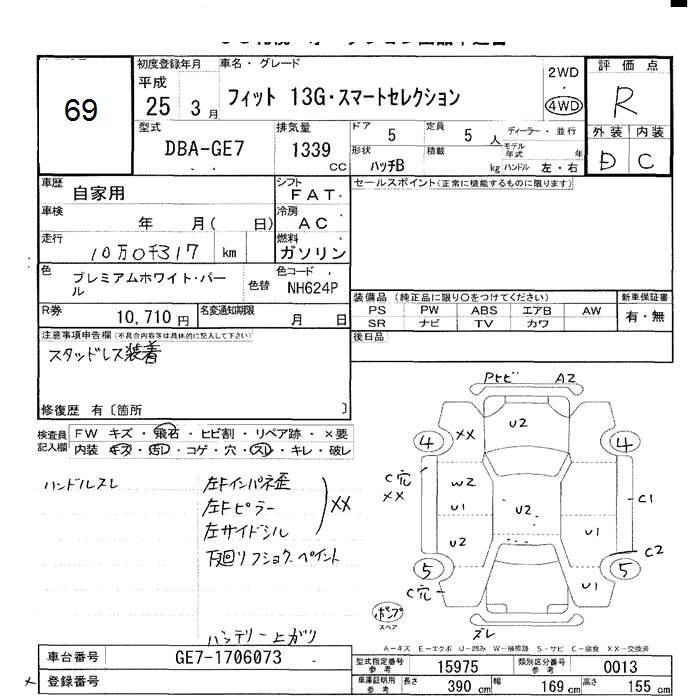 69
初度登録年月 車名・グレード 評価点
平成 25 3月 フィット 13G・スマートセレクション 2WD 4WD R
型式 排気量 ドア 定員 ディーラー・並行 外装 内装
DBA-GE7 1339 CC 5 5人 モデル年式 年 D C
形状 ハッチB 積載 kg ハンドル 左・右
車歴 自家用 シフト FAT セールスポイント(正常に機能するものに限ります)
車検 年 月( 日) 冷房 AC
走行 10万0千317 km 燃料 ガソリン
色 プレミアムホワイト・パール 色替 色コード NH624P
装備品(純正品に限り○をつけてください) 新車保証書
PS PW ABS エアB AW 有・無
SR ナビ TV カワ
R券 10,710円 名変通知期限 月 日
後日品
注意事項申告欄(不具合内容等は具体的に記入して下さい)
スタッドレス装着
修復歴 有〔箇所 〕
検査員記入欄 FW キズ・飛石・ヒビ割・リペア跡・×要
内装 キズ・汚レ・コゲ・穴・スレ・キレ・破レ
ハンドルスレ 左Fインパネ歪
左Fピラー XX
左サイドシル
下廻リフショク ペイント
バッテリー上ガリ
Pヒビ A2
U2
4 XX 4
C穴 XX W2 U1 U2 C1
U2 U1 C2
5 5
C穴 U1
ポンプ スペア ズレ
A-キズ E-エクボ U-凹み W-補修跡 S-サビ C-腐食 XX-交換済
車台番号 GE7-1706073 型式指定番号 参考 15975 類別区分番号 参考 0013
登録番号 車庫証明用 参考 長さ 390 cm 幅 169 cm 高さ 155 cm